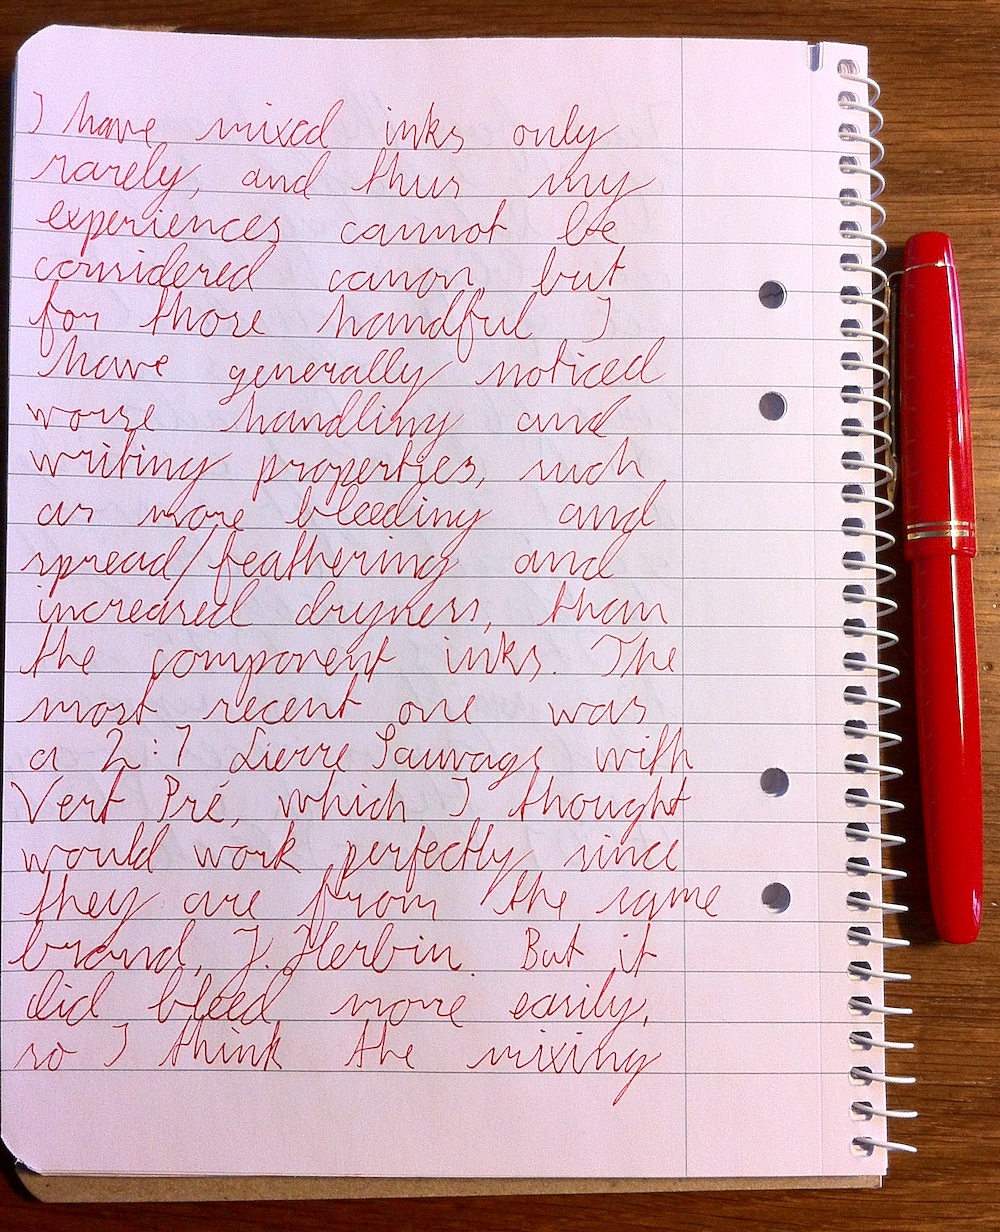 I have mixed inks only
rarely, and thus my
experiences cannot be
considered canon but
for those handful I
have generally noticed
worse handling and
writing properties, such
as more bleeding and
spread/feathering and
increased dryness, than
the component inks. The
most recent one was
a 2:1 Lierre Sauvage with
Vert Pré, which I thought
would work perfectly since
they are from the same
brand, J. Herbin. But it
did bleed more easily,
so I think the mixing